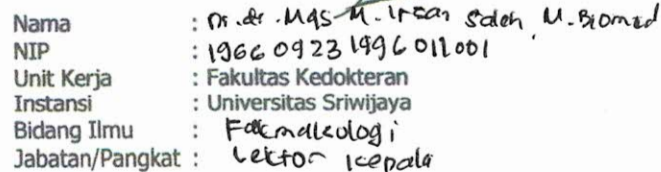 Nama : Dr. dr. Mgs. M. Irsan Saleh, M. Biomed
NIP : 196609231996011001
Unit Kerja : Fakultas Kedokteran
Instansi : Universitas Sriwijaya
Bidang Ilmu : Farmakologi
Jabatan/Pangkat : Lektor Kepala